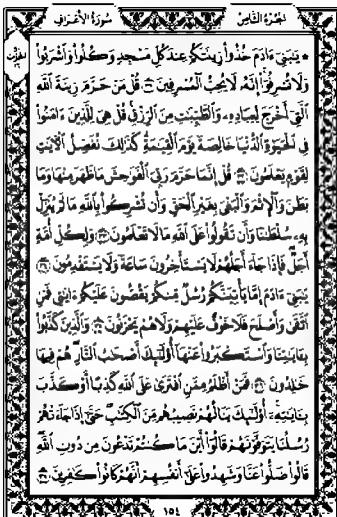 الجزء الثامن سورة الأعراف
۞ يَٰبَنِىٓ ءَادَمَ خُذُوا۟ زِينَتَكُمْ عِندَ كُلِّ مَسْجِدٍ وَكُلُوا۟ وَٱشْرَبُوا۟
وَلَا تُسْرِفُوٓا۟ إِنَّهُۥ لَا يُحِبُّ ٱلْمُسْرِفِينَ ٣١ قُلْ مَنْ حَرَّمَ زِينَةَ ٱللَّهِ
ٱلَّتِىٓ أَخْرَجَ لِعِبَادِهِۦ وَٱلطَّيِّبَٰتِ مِنَ ٱلرِّزْقِ قُلْ هِىَ لِلَّذِينَ ءَامَنُوا۟
فِى ٱلْحَيَوٰةِ ٱلدُّنْيَا خَالِصَةً يَوْمَ ٱلْقِيَٰمَةِ كَذَٰلِكَ نُفَصِّلُ ٱلْءَايَٰتِ
لِقَوْمٍ يَعْلَمُونَ ٣٢ قُلْ إِنَّمَا حَرَّمَ رَبِّىَ ٱلْفَوَٰحِشَ مَا ظَهَرَ مِنْهَا وَمَا
بَطَنَ وَٱلْإِثْمَ وَٱلْبَغْىَ بِغَيْرِ ٱلْحَقِّ وَأَن تُشْرِكُوا۟ بِٱللَّهِ مَا لَمْ يُنَزِّلْ
بِهِۦ سُلْطَٰنًا وَأَن تَقُولُوا۟ عَلَى ٱللَّهِ مَا لَا تَعْلَمُونَ ٣٣ وَلِكُلِّ أُمَّةٍ
أَجَلٌ فَإِذَا جَآءَ أَجَلُهُمْ لَا يَسْتَأْخِرُونَ سَاعَةً وَلَا يَسْتَقْدِمُونَ ٣٤
يَٰبَنِىٓ ءَادَمَ إِمَّا يَأْتِيَنَّكُمْ رُسُلٌ مِّنكُمْ يَقُصُّونَ عَلَيْكُمْ ءَايَٰتِى فَمَنِ
ٱتَّقَىٰ وَأَصْلَحَ فَلَا خَوْفٌ عَلَيْهِمْ وَلَا هُمْ يَحْزَنُونَ ٣٥ وَٱلَّذِينَ كَذَّبُوا۟
بِـَٔايَٰتِنَا وَٱسْتَكْبَرُوا۟ عَنْهَآ أُو۟لَٰٓئِكَ أَصْحَٰبُ ٱلنَّارِ هُمْ فِيهَا
خَٰلِدُونَ ٣٦ فَمَنْ أَظْلَمُ مِمَّنِ ٱفْتَرَىٰ عَلَى ٱللَّهِ كَذِبًا أَوْ كَذَّبَ
بِـَٔايَٰتِهِۦٓ أُو۟لَٰٓئِكَ يَنَالُهُمْ نَصِيبُهُم مِّنَ ٱلْكِتَٰبِ حَتَّىٰٓ إِذَا جَآءَتْهُمْ
رُسُلُنَا يَتَوَفَّوْنَهُمْ قَالُوٓا۟ أَيْنَ مَا كُنتُمْ تَدْعُونَ مِن دُونِ ٱللَّهِ
قَالُوا۟ ضَلُّوا۟ عَنَّا وَشَهِدُوا۟ عَلَىٰٓ أَنفُسِهِمْ أَنَّهُمْ كَانُوا۟ كَٰفِرِينَ ٣٧
١٥٤